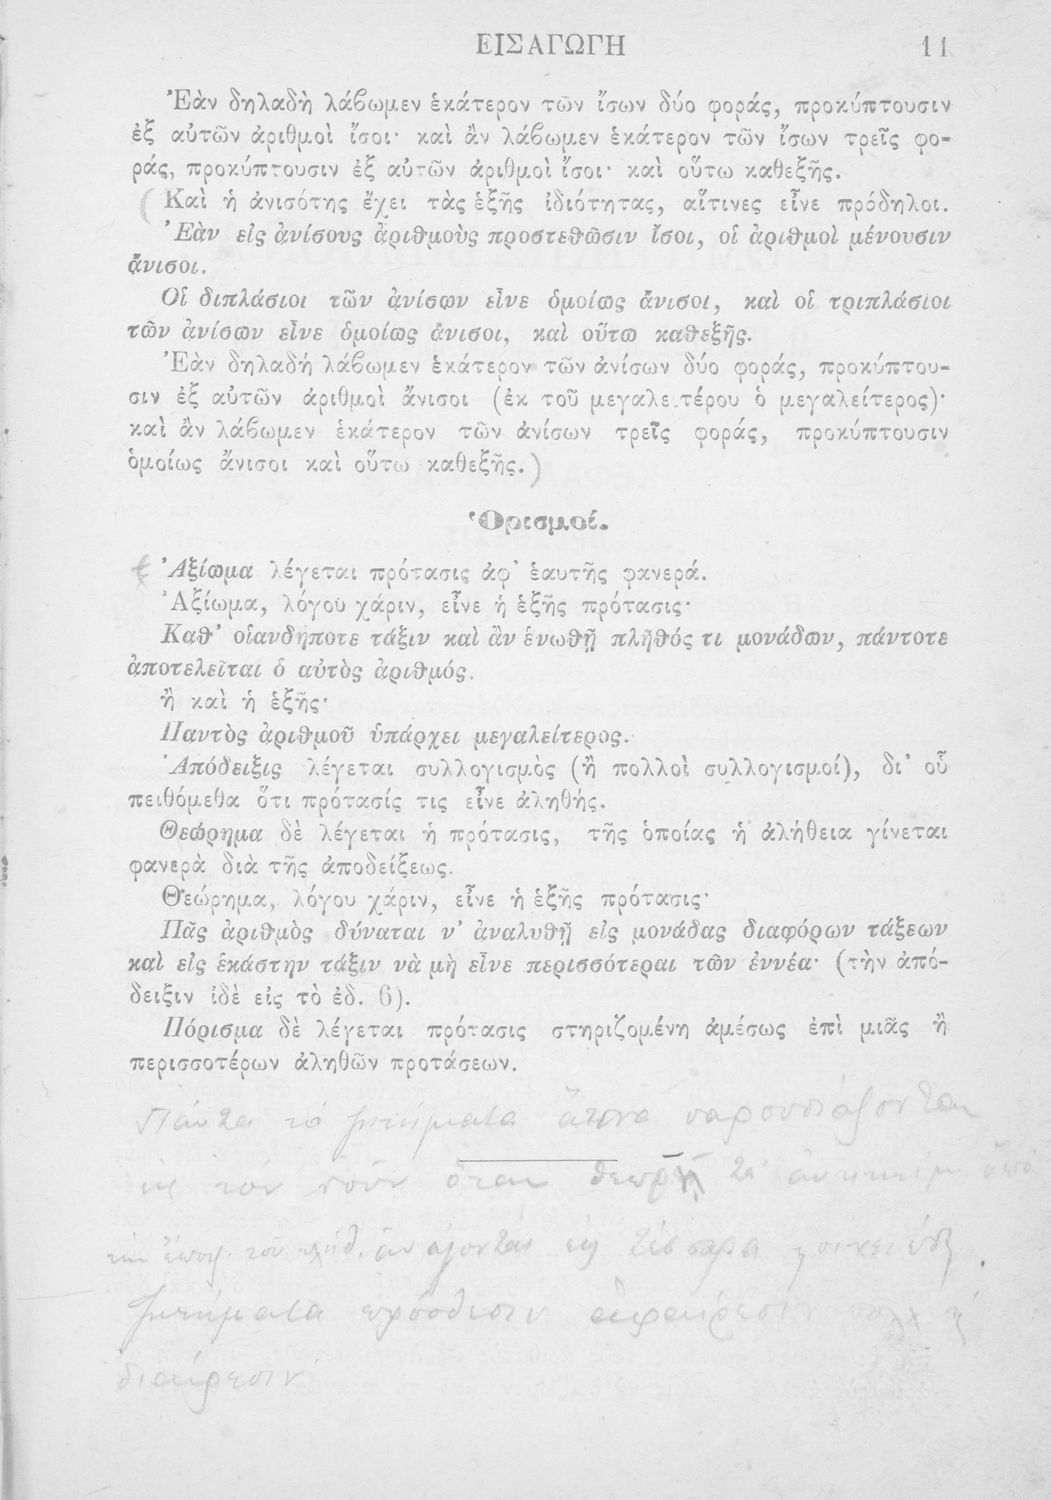 ΕΙΣΑΓΩΓΗ 11
Ἐὰν δηλαδὴ λάβωμεν ἑκάτερον τῶν ἴσων δύο φοράς, προκύπτουσιν
ἐξ αὐτῶν ἀριθμοὶ ἴσοι· καὶ ἂν λάβωμεν ἑκάτερον τῶν ἴσων τρεῖς φο-
ράς, προκύπτουσιν ἐξ αὐτῶν ἀριθμοὶ ἴσοι· καὶ οὕτω καθεξῆς.
(Καὶ ἡ ἀνισότης ἔχει τὰς ἑξῆς ἰδιότητας, αἵτινες εἶνε πρόδηλοι.
Ἐὰν εἰς ἀνίσους ἀριθμοὺς προστεθῶσιν ἴσοι, οἱ ἀριθμοὶ μένουσιν
ἄνισοι.
Οἱ διπλάσιοι τῶν ἀνίσων εἶνε ὁμοίως ἄνισοι, καὶ οἱ τριπλάσιοι
τῶν ἀνίσων εἶνε ὁμοίως ἄνισοι, καὶ οὕτω καθεξῆς.
Ἐὰν δηλαδὴ λάβωμεν ἑκάτερον τῶν ἀνίσων δύο φοράς, προκύπτου-
σιν ἐξ αὐτῶν ἀριθμοὶ ἄνισοι (ἐκ τοῦ μεγαλειτέρου ὁ μεγαλείτερος)·
καὶ ἂν λάβωμεν ἑκάτερον τῶν ἀνίσων τρεῖς φοράς, προκύπτουσιν
ὁμοίως ἄνισοι καὶ οὕτω καθεξῆς.)
Ὁρισμοί.
Ἀξίωμα λέγεται πρότασις ἀφ' ἑαυτῆς φανερά.
Ἀξίωμα, λόγου χάριν, εἶνε ἡ ἑξῆς πρότασις·
Καθ' οἱανδήποτε τάξιν καὶ ἂν ἑνωθῇ πλῆθός τι μονάδων, πάντοτε
ἀποτελεῖται ὁ αὐτὸς ἀριθμός.
ἢ καὶ ἡ ἑξῆς·
Παντὸς ἀριθμοῦ ὑπάρχει μεγαλείτερος.
Ἀπόδειξις λέγεται συλλογισμὸς (ἢ πολλοὶ συλλογισμοί), δι' οὗ
πειθόμεθα ὅτι πρότασίς τις εἶνε ἀληθής.
Θεώρημα δὲ λέγεται ἡ πρότασις, τῆς ὁποίας ἡ ἀλήθεια γίνεται
φανερὰ διὰ τῆς ἀποδείξεως.
Θεώρημα, λόγου χάριν, εἶνε ἡ ἑξῆς πρότασις·
Πᾶς ἀριθμὸς δύναται ν' ἀναλυθῇ εἰς μονάδας διαφόρων τάξεων
καὶ εἰς ἑκάστην τάξιν νὰ μὴ εἶνε περισσότεραι τῶν ἐννέα· (τὴν ἀπό-
δειξιν ἰδὲ εἰς τὸ ἐδ. 6).
Πόρισμα δὲ λέγεται πρότασις στηριζομένη ἀμέσως ἐπὶ μιᾶς ἢ
περισσοτέρων ἀληθῶν προτάσεων.
Πάντα τά ζητήματα ἅτινα παρουσιάζονται
εἰς τόν νοῦν ὅταν θεωρῇ τά ὑπό
τήν τοῦ ἀνάγονται εἰς τέσσαρα
ζητήματα πρόσθεσιν ἀφαίρεσιν πολλ ή
διαίρεσιν